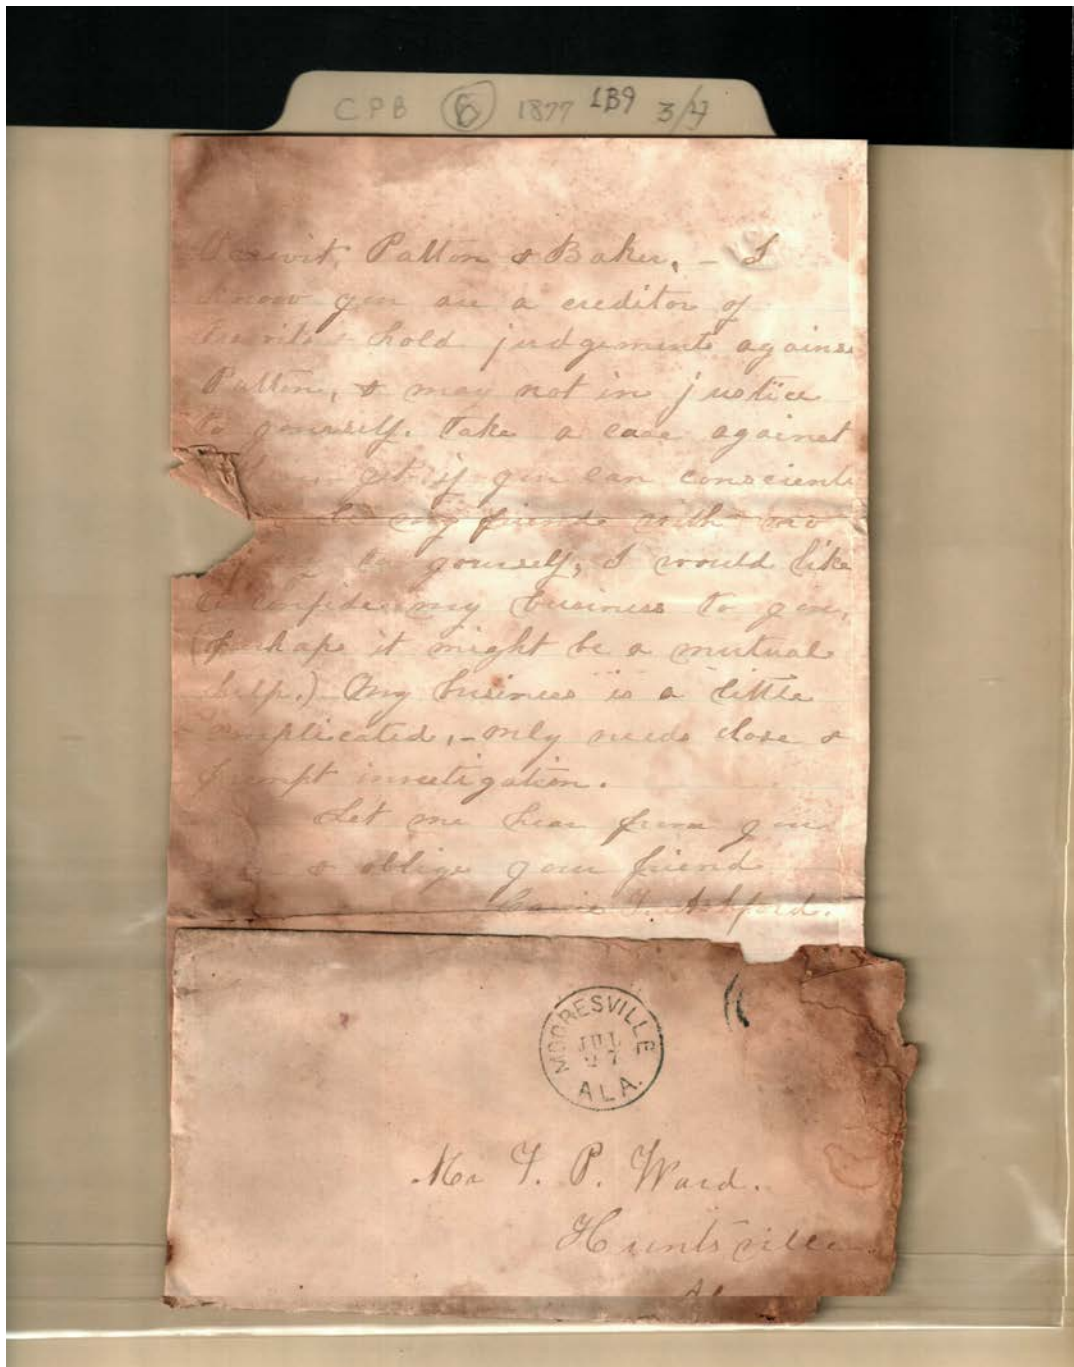 CPB 6 1877 1B9 3/4
Patton & Baker, - I
know you are a creditor of
hold judgements against
Patton, & may not in justice
to yourself, take a case against
yet if you can conscient
my friend with no
to yourself, I would like
to confide my business to you,
(perhaps it might be a mutual
help.) My business is a little
complicated, - only needs close &
prompt investigation.
Let me hear from you
& oblige your friend
Carrie F. Ashford.
MOORESVILLE
JUL
27
ALA.
Mr F. P. Ward.
Huntsville
Al